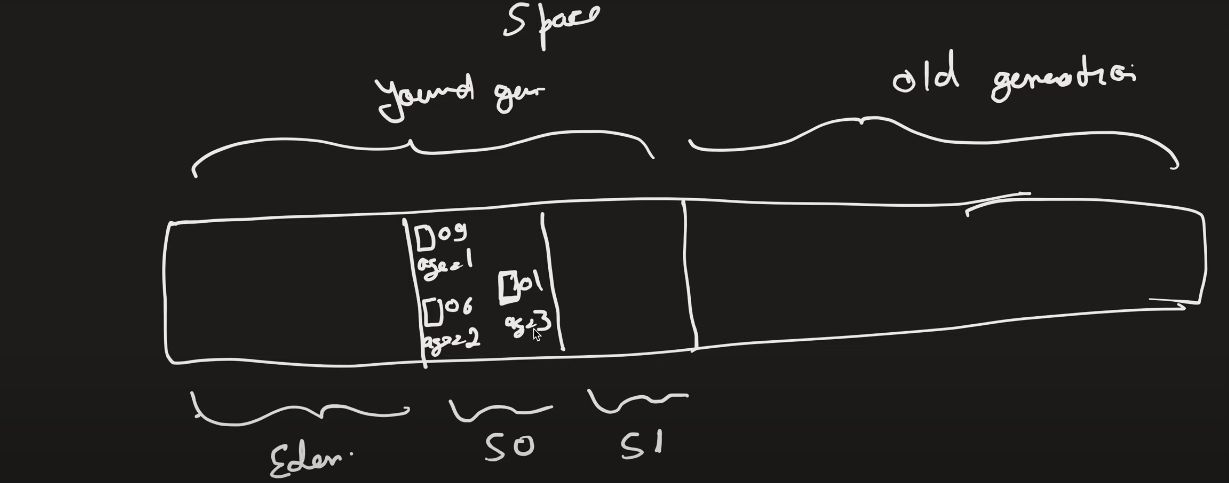 Space
yound gen
old generatio
09
age=1
01
06
age=3
age=2
Eden.
S0
S1